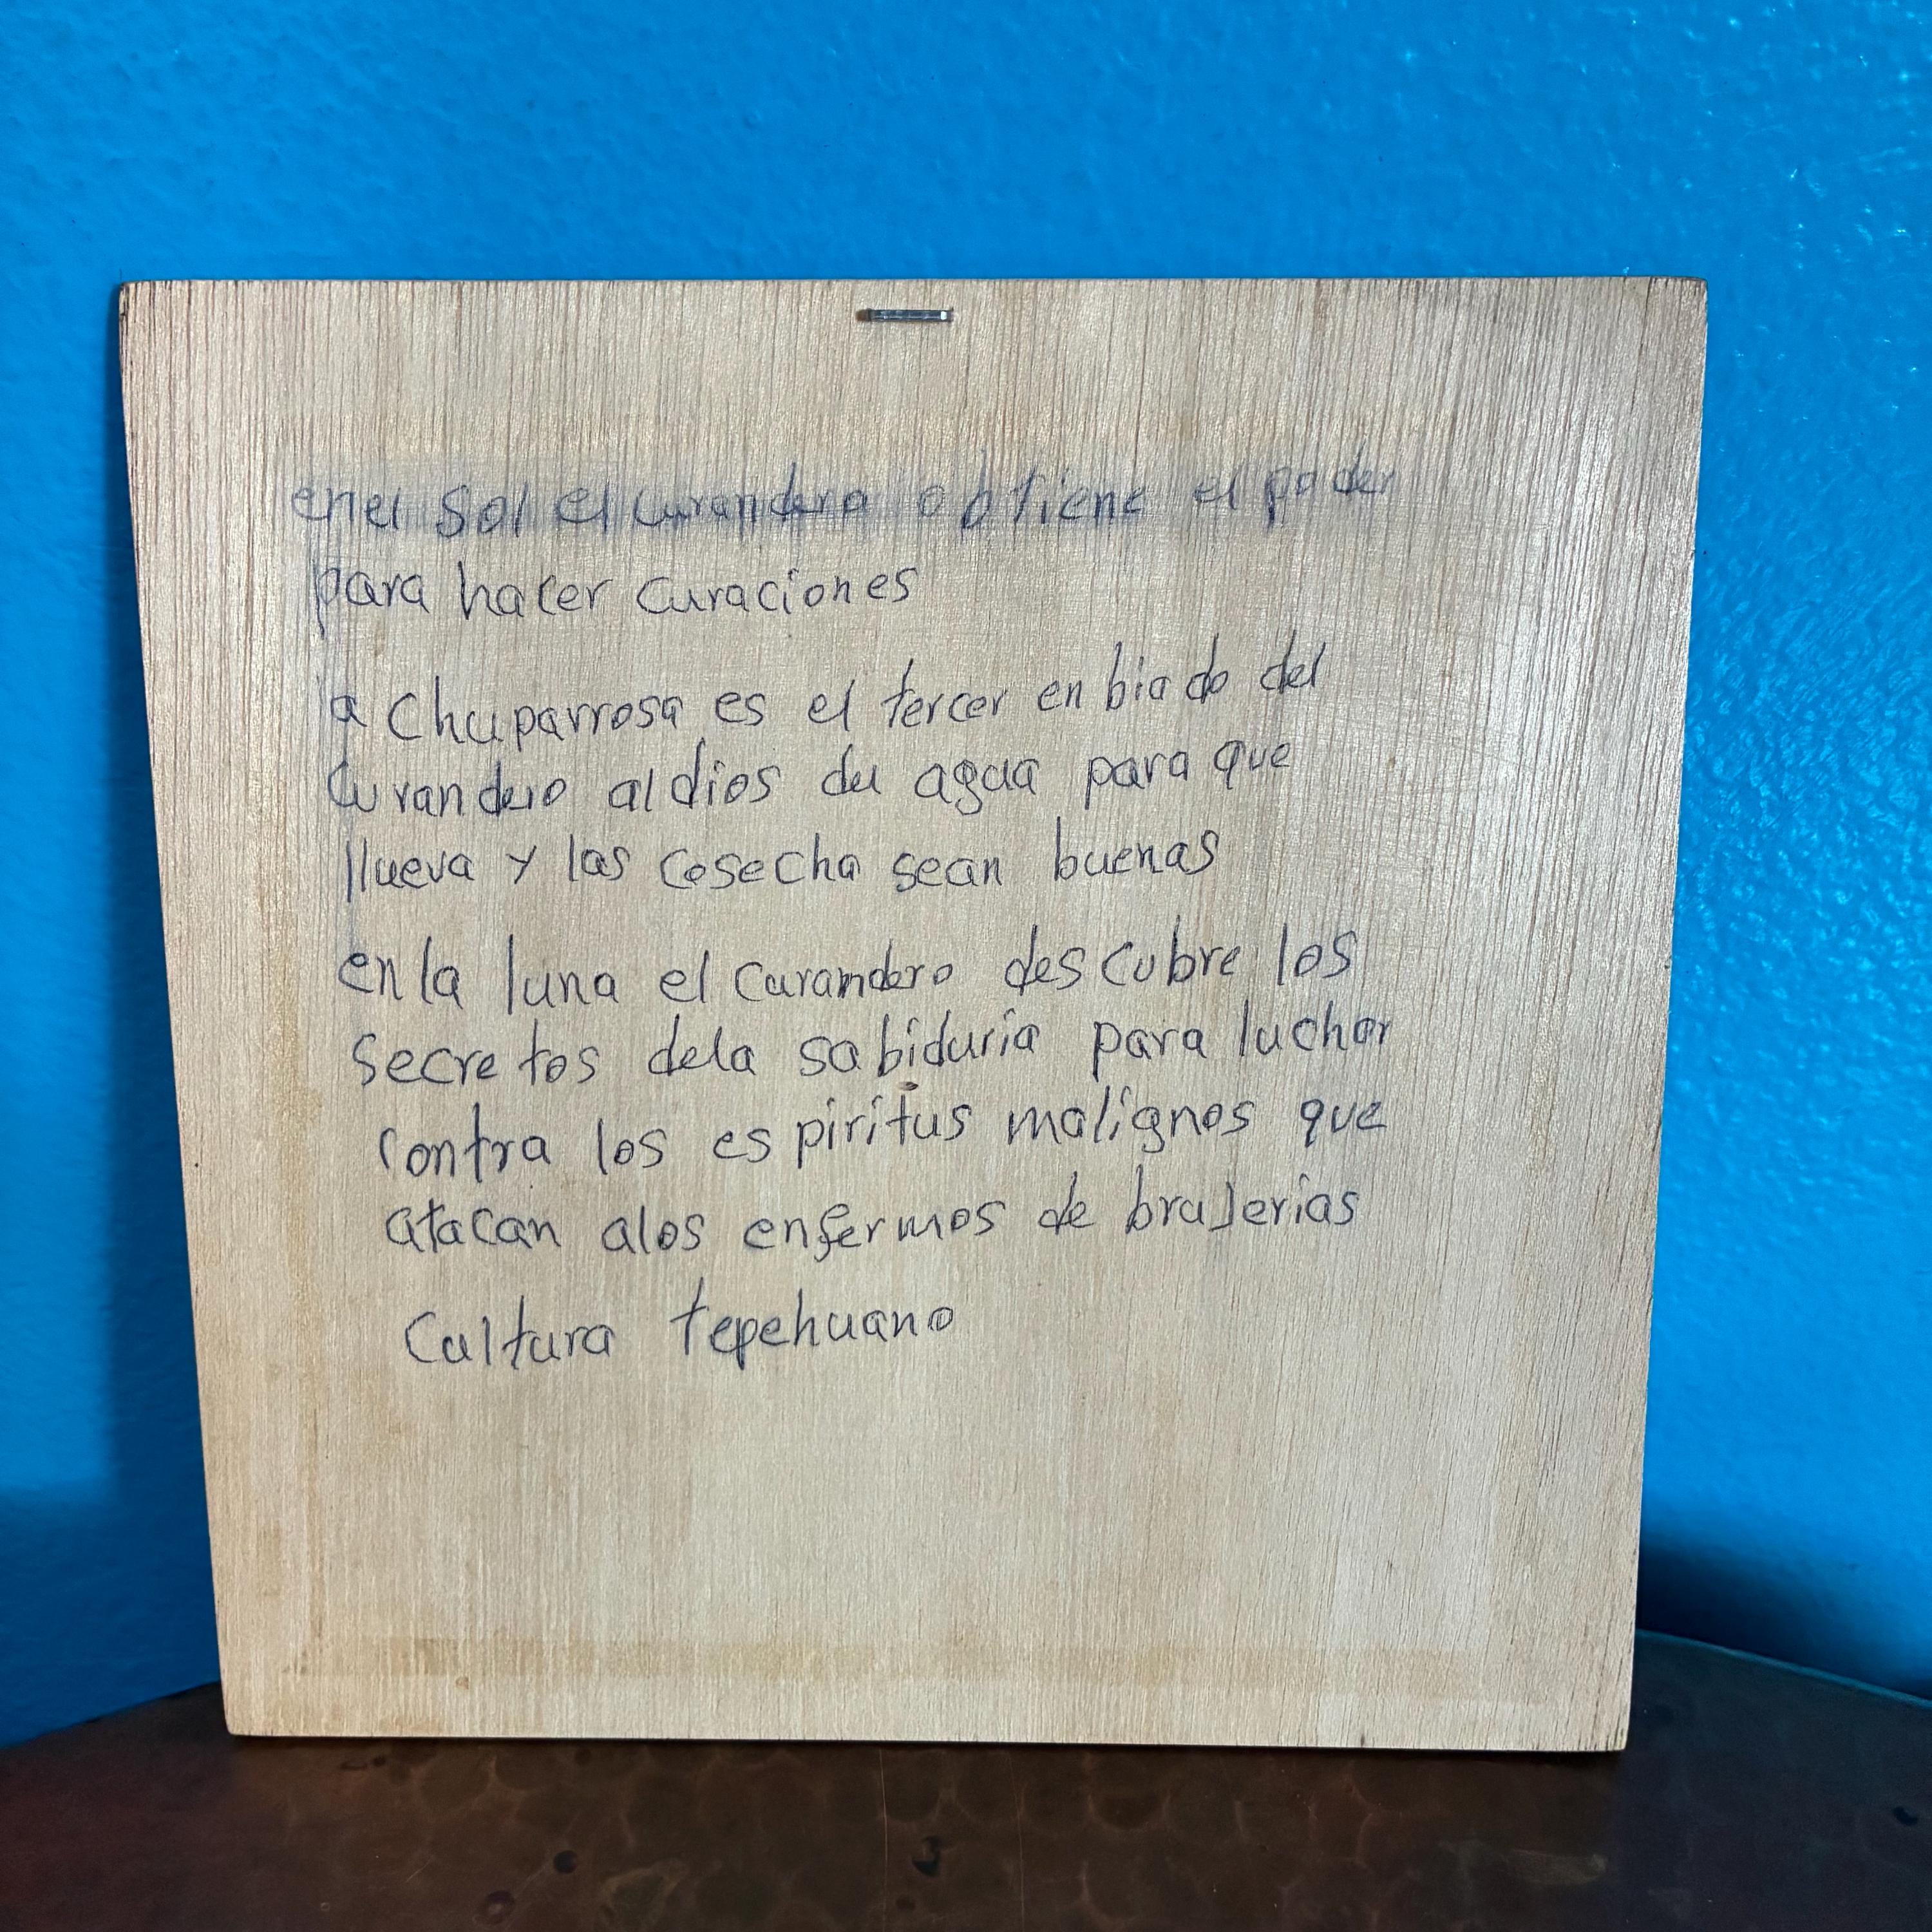 enel sol el curandero obtiene el poder
para hacer curaciones
a chuparrosa es el tercer en biado del
curandero al dios du agua para que
llueva y las cosecha sean buenas
en la luna el curandero des cubre los
secretos dela sabiduria para luchar
contra los espiritus malignos que
atacan alos enfermos de brujerias
Cultura tepehuano